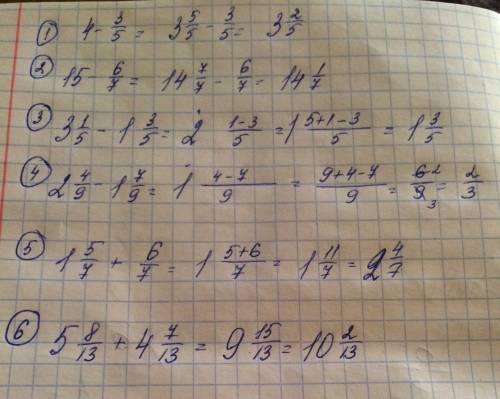 ① 4 - 3/5 = 3 5/5 - 3/5 = 3 2/5
② 15 - 6/7 = 14 7/7 - 6/7 = 14 1/7
③ 3 1/5 - 1 3/5 = 2 (1-3)/5 = 1 (5+1-3)/5 = 1 3/5
④ 2 4/9 - 1 7/9 = 1 (4-7)/9 = (9+4-7)/9 = 6²/9₃ = 2/3
⑤ 1 5/7 + 6/7 = 1 (5+6)/7 = 1 11/7 = 2 4/7
⑥ 5 8/13 + 4 7/13 = 9 15/13 = 10 2/13